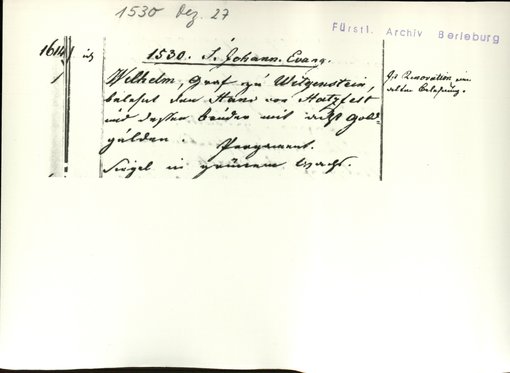 1530 Dez. 27
Fürstl. Archiv Berleburg
1614
1530. S. Johann. Evang.
Wilhelm, Graf zu Witgenstein,
belehnt den Hans von Hatzfelt
und dessen bruder mit acht Gold-
gülden.
Pergament.
Siegel in grünem Wachs.
Ist Renovation einer
alten Belehnung.